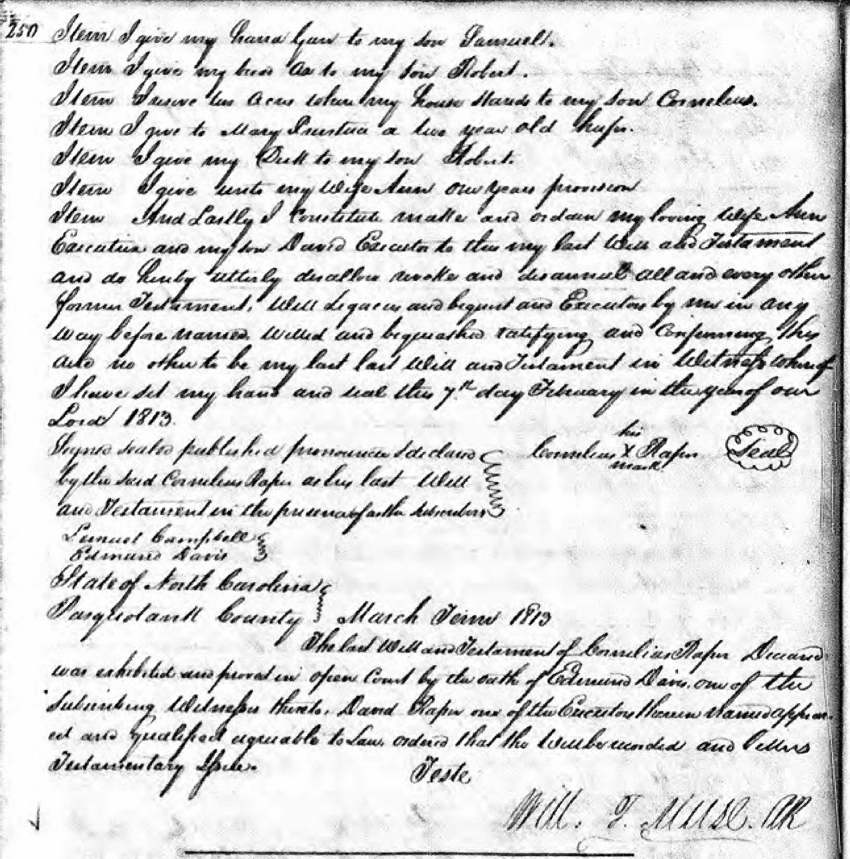 250
Item I give my hand Gun to my son Samuell.
Item I give my broad ax to my son Robert.
Item I reserve ten Acres where my house stands to my son Cornelius.
Item I give to Mary a two year old heifer.
Item I give my Desk to my son Robert.
Item I give unto my Wife Ann one years provision
Item And Lastly I constitute make and ordain my loving Wife Ann
Executrix and my son David Executor to this my last Will and Testament
and do hereby utterly disallow revoke and disannul all and every other
former Testament, Will Legacies and bequest and Executors by me in any
way before named Willed and bequeathed ratifying and confirming this
and no other to be my last last Will and Testament in Witness whereof
I have set my hand and seal this 7th day February in the year of our
Lord 1813.
Signed sealed published pronounced & declared
by the said Cornelius Raper as his last Will
and Testament in the presence of us the subscribers
his
Cornelius X Raper Seal
mark
Lemuel Campbell
Edmund Davis
State of North Carolina
Pasquotank County March Term 1813
The last Will and Testament of Cornelius Raper Deceased
was exhibited and proved in open Court by the oath of Edmund Davis, one of the
Subscribing Witnesses thereto. David Raper one of the Executors therein named appear-
ed and qualified agreeable to Law, ordered that the Will be recorded and letters
Testamentary
Teste
Will. T. Muse. CR